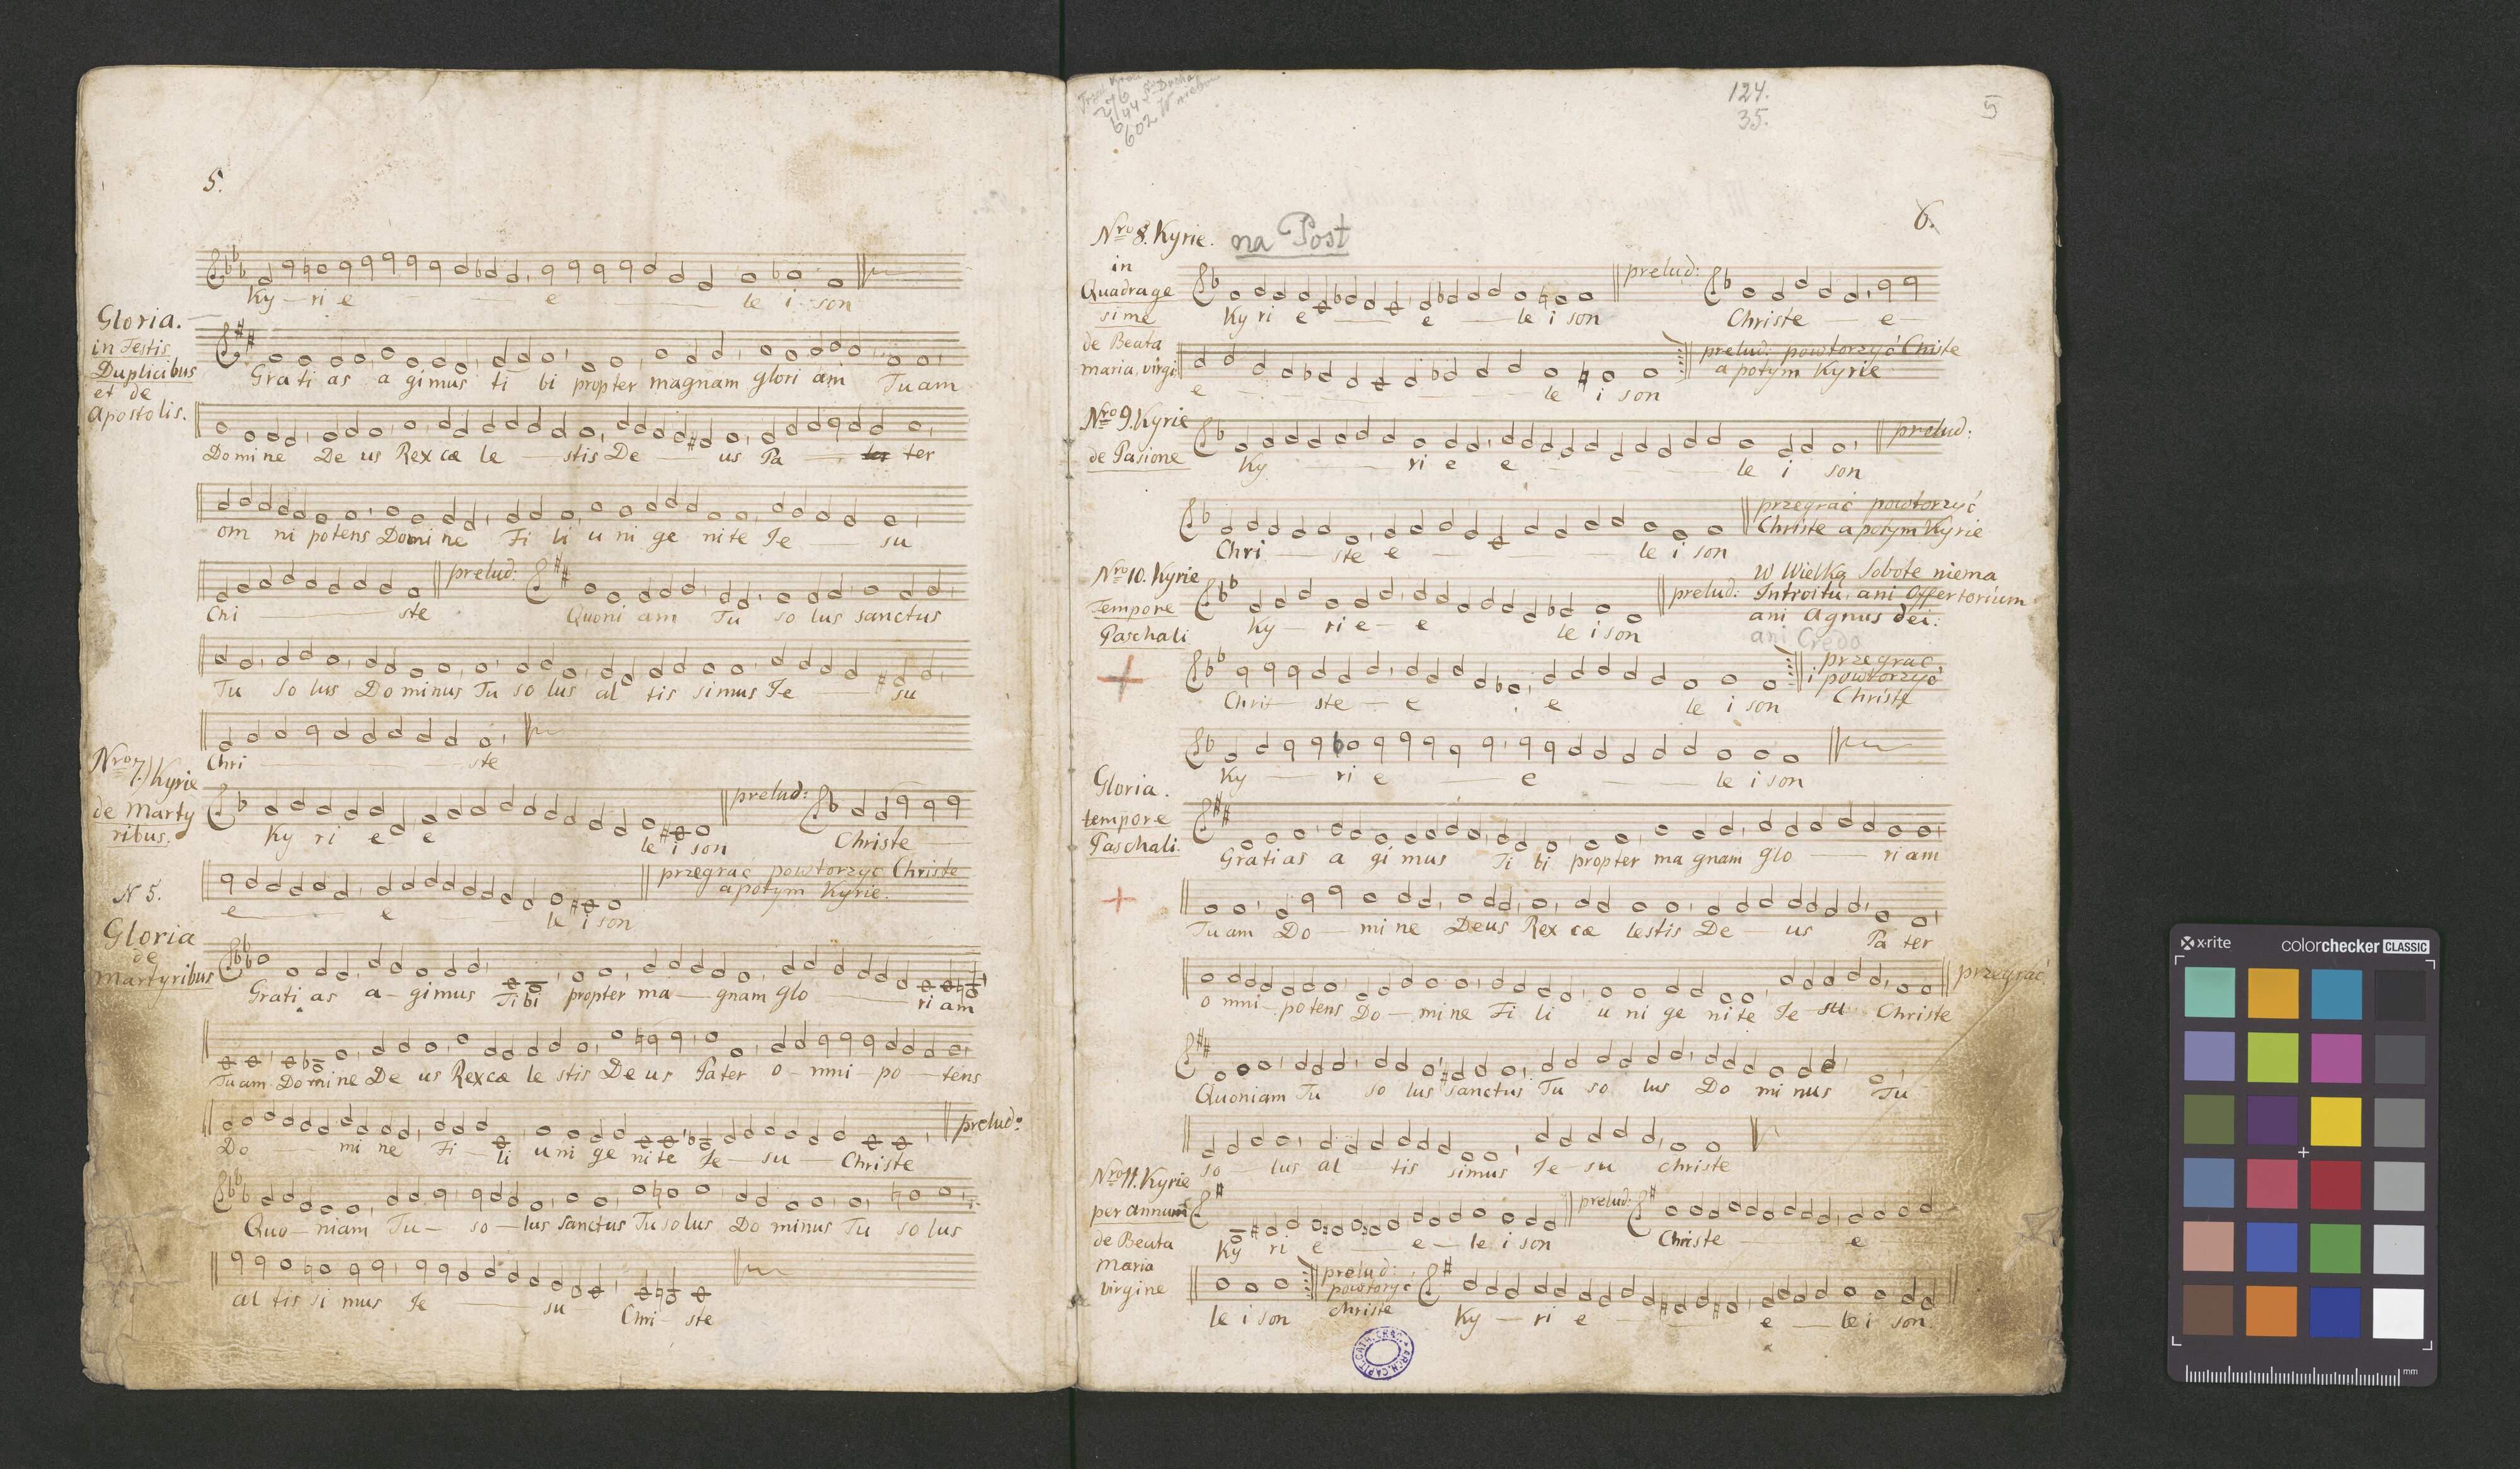 5.
Ky — ri e — e — le i son
Gloria.
in Festis
Duplicibus
et de
Apostolis.
Grati as a gimus ti bi propter magnam glori am Tuam
Domine De us Rex cæ le — stis De — us Pa — ter
om ni potens Domi ne Fi li u ni ge nite Ie — su
Chi — ste prelud: Quoni am Tu so lus sanctus
Tu so lus Dominus Tu so lus al tis simus Ie — su
Chri — ste
Nro 7.) Kyrie
de Marty
ribus.
Ky ri e e le i son prelud: Christe —
e — e — le i son przegrać powtorzyc Christe
a potym Kyrie.
N 5.
Gloria
de
Martyribus
Grati as a - gimus Ti bi propter ma — gnam glo — ri am
Tuam Domine De us Rex cæ le stis De us Pater o - mni - po - tens
Do — mi ne Fi — li u ni ge nite Ie — su — Christe prelud:
Quo — niam Tu — so — lus Sanctus Tu solus Do minus Tu so lus
al tis si mus Ie — su Chri — ste
276
602
124.
35.
5
6.
Nro 8. Kyrie. na Post
in
Quadrage
sime
de Beata
maria, virgi
Ky ri e — e — le i son prelud: Christe — e —
e — le i son prelud: powtorzyć Chiste
a potym Kyrie
Nro 9. Kyrie
de Pasione
Ky — ri e e — le i son prelud:
Chri — ste e — le i son przegrać powtorzyć
Christe a potym Kyrie
Nro 10. Kyrie
Tempore
Paschali
Ky — ri e — e le i son prelud: W Wielką Sobote niema
Introitu, ani Offertorium
ani Agnus dei.
ani Credo
Christ — ste — e e le i son przegrac,
i powtorzyć
Christe
Ky — ri e — e — le i son
Gloria.
tempore
Paschali.
Grati as a gi mus Ti bi propter ma gnam glo — ri am
Tu am Do — mi ne Deus Rex cæ lestis De — us Pa ter
o mni - potens Do — mi ne Fi li u ni ge nite Ie - su Christe przegrać
Quoniam Tu so lus sanctus Tu so lus Do mi nus Tu
so — lus al — tis simus Ie — su christe
Nro 11. Kyrie
per annum
de Beata
Maria
virgine
Ky ri e — e — le i son prelud: Christe — e
le i son prelud:
powtoryć
christe
Ky — ri e — e — le i son.
ARCH. CAPIT. CATH. CRAC.
x·rite colorchecker CLASSIC
mm